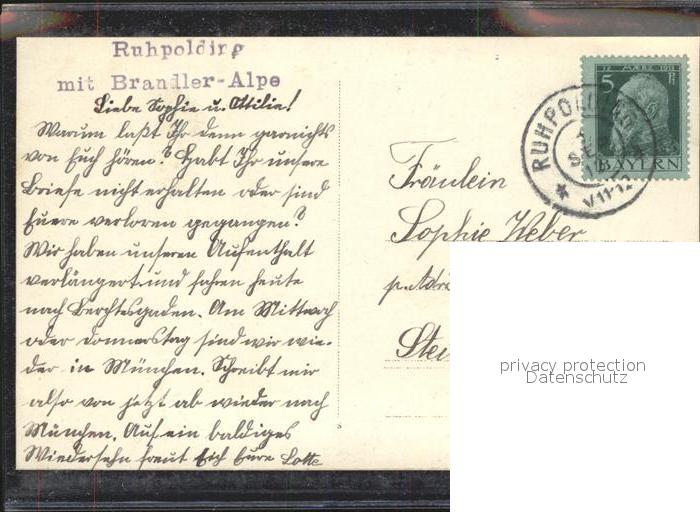 Ruhpolding
mit Brandler-Alpe
Liebe Sophie u. Ottilie!
Warum laßt Ihr denn garnichts
von Euch hören? Habt Ihr unsere
Briefe nicht erhalten oder sind
Euere verloren gegangen?
Wir haben unseren Aufenthalt
verlängert und fahren heute
nach Berchtesgaden. Am Mittwoch
oder Donnerstag sind wir wie-
der in München. Schreibt mir
also von jetzt ab wieder nach
München. Auf ein baldiges
Wiedersehn freut sich Eure Lotte
12 MÄRZ 1911
5 Pf
BAYERN
RUHPOLDING
V11-12
Fräulein
Sophie Weber
p. Adr
Stei
privacy protection
Datenschutz